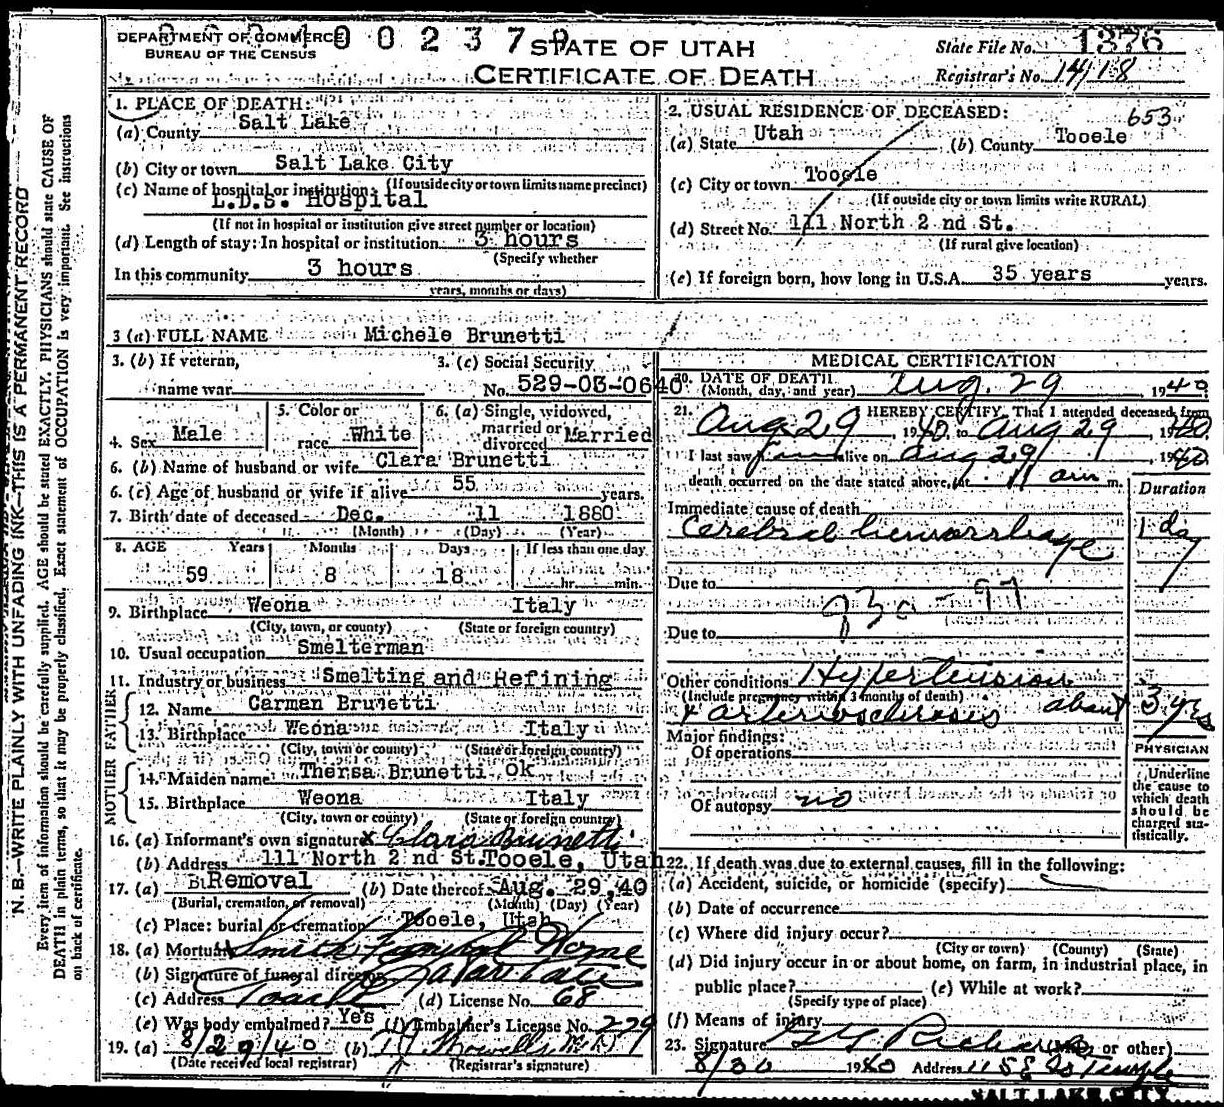 DEPARTMENT OF COMMERCE
BUREAU OF THE CENSUS
1 0 0 2 3 7
STATE OF UTAH
CERTIFICATE OF DEATH
State File No. 1376
Registrar's No. 1418
1. PLACE OF DEATH:
(a) County Salt Lake
(b) City or town Salt Lake City
(If outside city or town limits name precinct)
(c) Name of hospital or institution:
L.D.S. Hospital
(If not in hospital or institution give street number or location)
(d) Length of stay: In hospital or institution 3 hours
(Specify whether
In this community 3 hours
years, months or days)
2. USUAL RESIDENCE OF DECEASED: 653
(a) State Utah (b) County Tooele
(c) City or town Tooele
(If outside city or town limits write RURAL)
(d) Street No. 111 North 2 nd St.
(If rural give location)
(e) If foreign born, how long in U.S.A. 35 years years.
3 (a) FULL NAME Michele Brunetti
3. (b) If veteran,
name war
3. (c) Social Security
No. 529-03-0640
4. Sex Male
5. Color or
race White
6. (a) Single, widowed,
married or
divorced Married
6. (b) Name of husband or wife Clara Brunetti
6. (c) Age of husband or wife if alive 55 years.
7. Birth date of deceased Dec. 11 1880
(Month) (Day) (Year)
8. AGE Years Months Days If less than one day
59 8 18 hr. min.
9. Birthplace Weona Italy
(City, town, or county) (State or foreign country)
10. Usual occupation Smelterman
11. Industry or business Smelting and Refining
FATHER
12. Name Carman Brunetti
13. Birthplace Weona Italy
(City, town or county) (State or foreign country)
MOTHER
14. Maiden name Thersa Brunetti ok
15. Birthplace Weona Italy
(City, town or county) (State or foreign country)
16. (a) Informant's own signature x Clara Brunetti
(b) Address 111 North 2 nd St. Tooele, Utah
17. (a) Removal (b) Date thereof Aug. 29, 40
(Burial, cremation, or removal) (Month) (Day) (Year)
(c) Place: burial or cremation Tooele, Utah
18. (a) Mortuary Smith Funeral Home
(b) Signature of funeral director
(c) Address Tooele (d) License No. 68
(e) Was body embalmed? Yes (f) Embalmer's License No. 229
19. (a) 8/29/40 (b) Howells
(Date received local registrar) (Registrar's signature)
MEDICAL CERTIFICATION
20. DATE OF DEATH
(Month, day, and year) Aug. 29, 1940
21. I HEREBY CERTIFY, That I attended deceased from
Aug 29, 1940, to Aug 29, 1940
I last saw him alive on Aug 29, 1940
death occurred on the date stated above, at 11 am m.
Duration
Immediate cause of death
Cerebral hemorrhage 1 day
Due to
930-97
Due to
Other conditions Hypertension
(Include pregnancy within 3 months of death)
& arteriosclerosis about 3 yrs
Major findings:
Of operations
Of autopsy no
PHYSICIAN
Underline
the cause to
which death
should be
charged sta-
tistically.
22. If death was due to external causes, fill in the following:
(a) Accident, suicide, or homicide (specify)
(b) Date of occurrence
(c) Where did injury occur?
(City or town) (County) (State)
(d) Did injury occur in or about home, on farm, in industrial place, in
public place? (e) While at work?
(Specify type of place)
(f) Means of injury
23. Signature (M.D. or other)
8/30 1940 Address 115 E So Temple
SALT LAKE CITY
N. B.—WRITE PLAINLY WITH UNFADING INK—THIS IS A PERMANENT RECORD
Every item of information should be carefully supplied. AGE should be stated EXACTLY. PHYSICIANS should state CAUSE OF
DEATH in plain terms, so that it may be properly classified. Exact statement of OCCUPATION is very important. See instructions
on back of certificate.